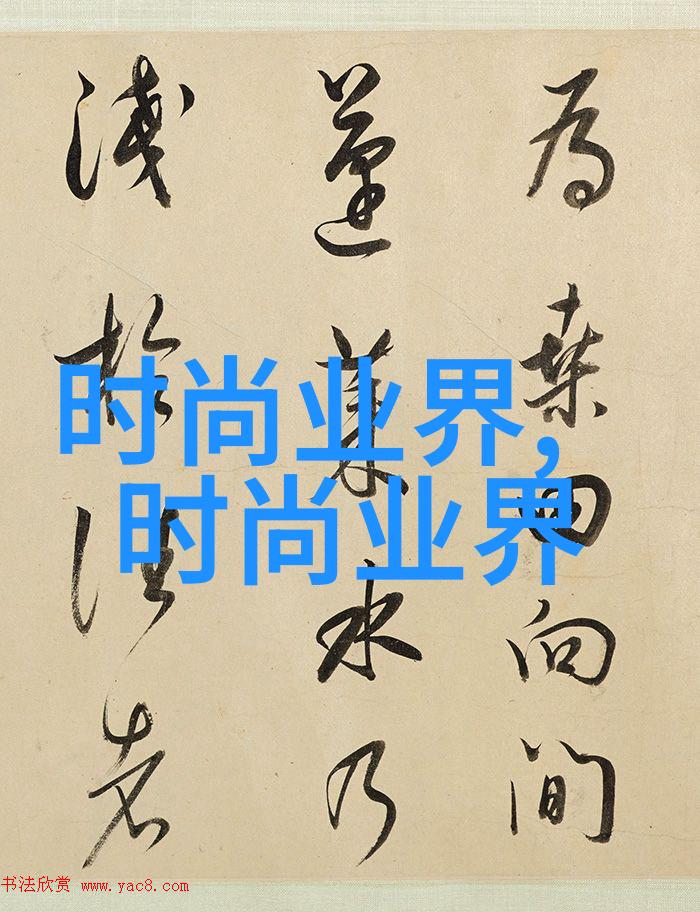 為桑田向間
蓬萊水乃
淺於往者
时尚业界,
时尚业界
书法欣赏 www.yac8.com